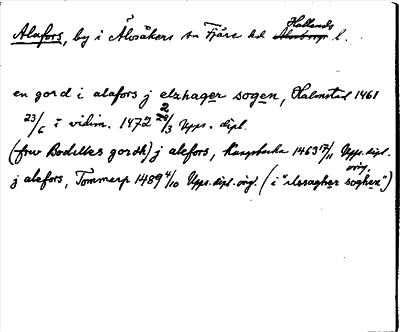 Hallands
Alafors, by i Älvsåkers sn Fjäre hd Älvsborgs l.
en gord i alafors j elzhager sogen, Halmstad 1461
23/6 i vidim. 1472 28/3 Upps. dipl.
(frw Bodilles gordh) j alefors, Kungsbacka 1463 17/11 Upps. dipl.
orig.
j alefors, Tommarp 1489 4/10 Upps. dipl. orig. (i "elssagher soghen")